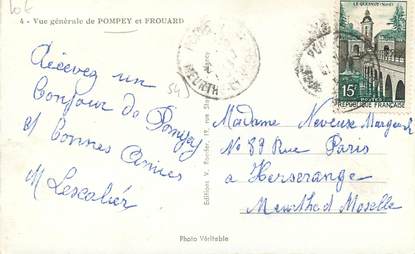 Lot
4 - Vue générale de POMPEY et FROUARD
Recevez un
bonjour de Pompey
et bonnes Amies
M Lescalier
54
Madame Neveux Marguerite
N° 89 Rue Paris
à Herserange
Meurthe et Moselle
LE QUESNOY (Nord)
15F
POSTES
REPUBLIQUE FRANÇAISE
MEURTHE
Editions V.
Photo Véritable